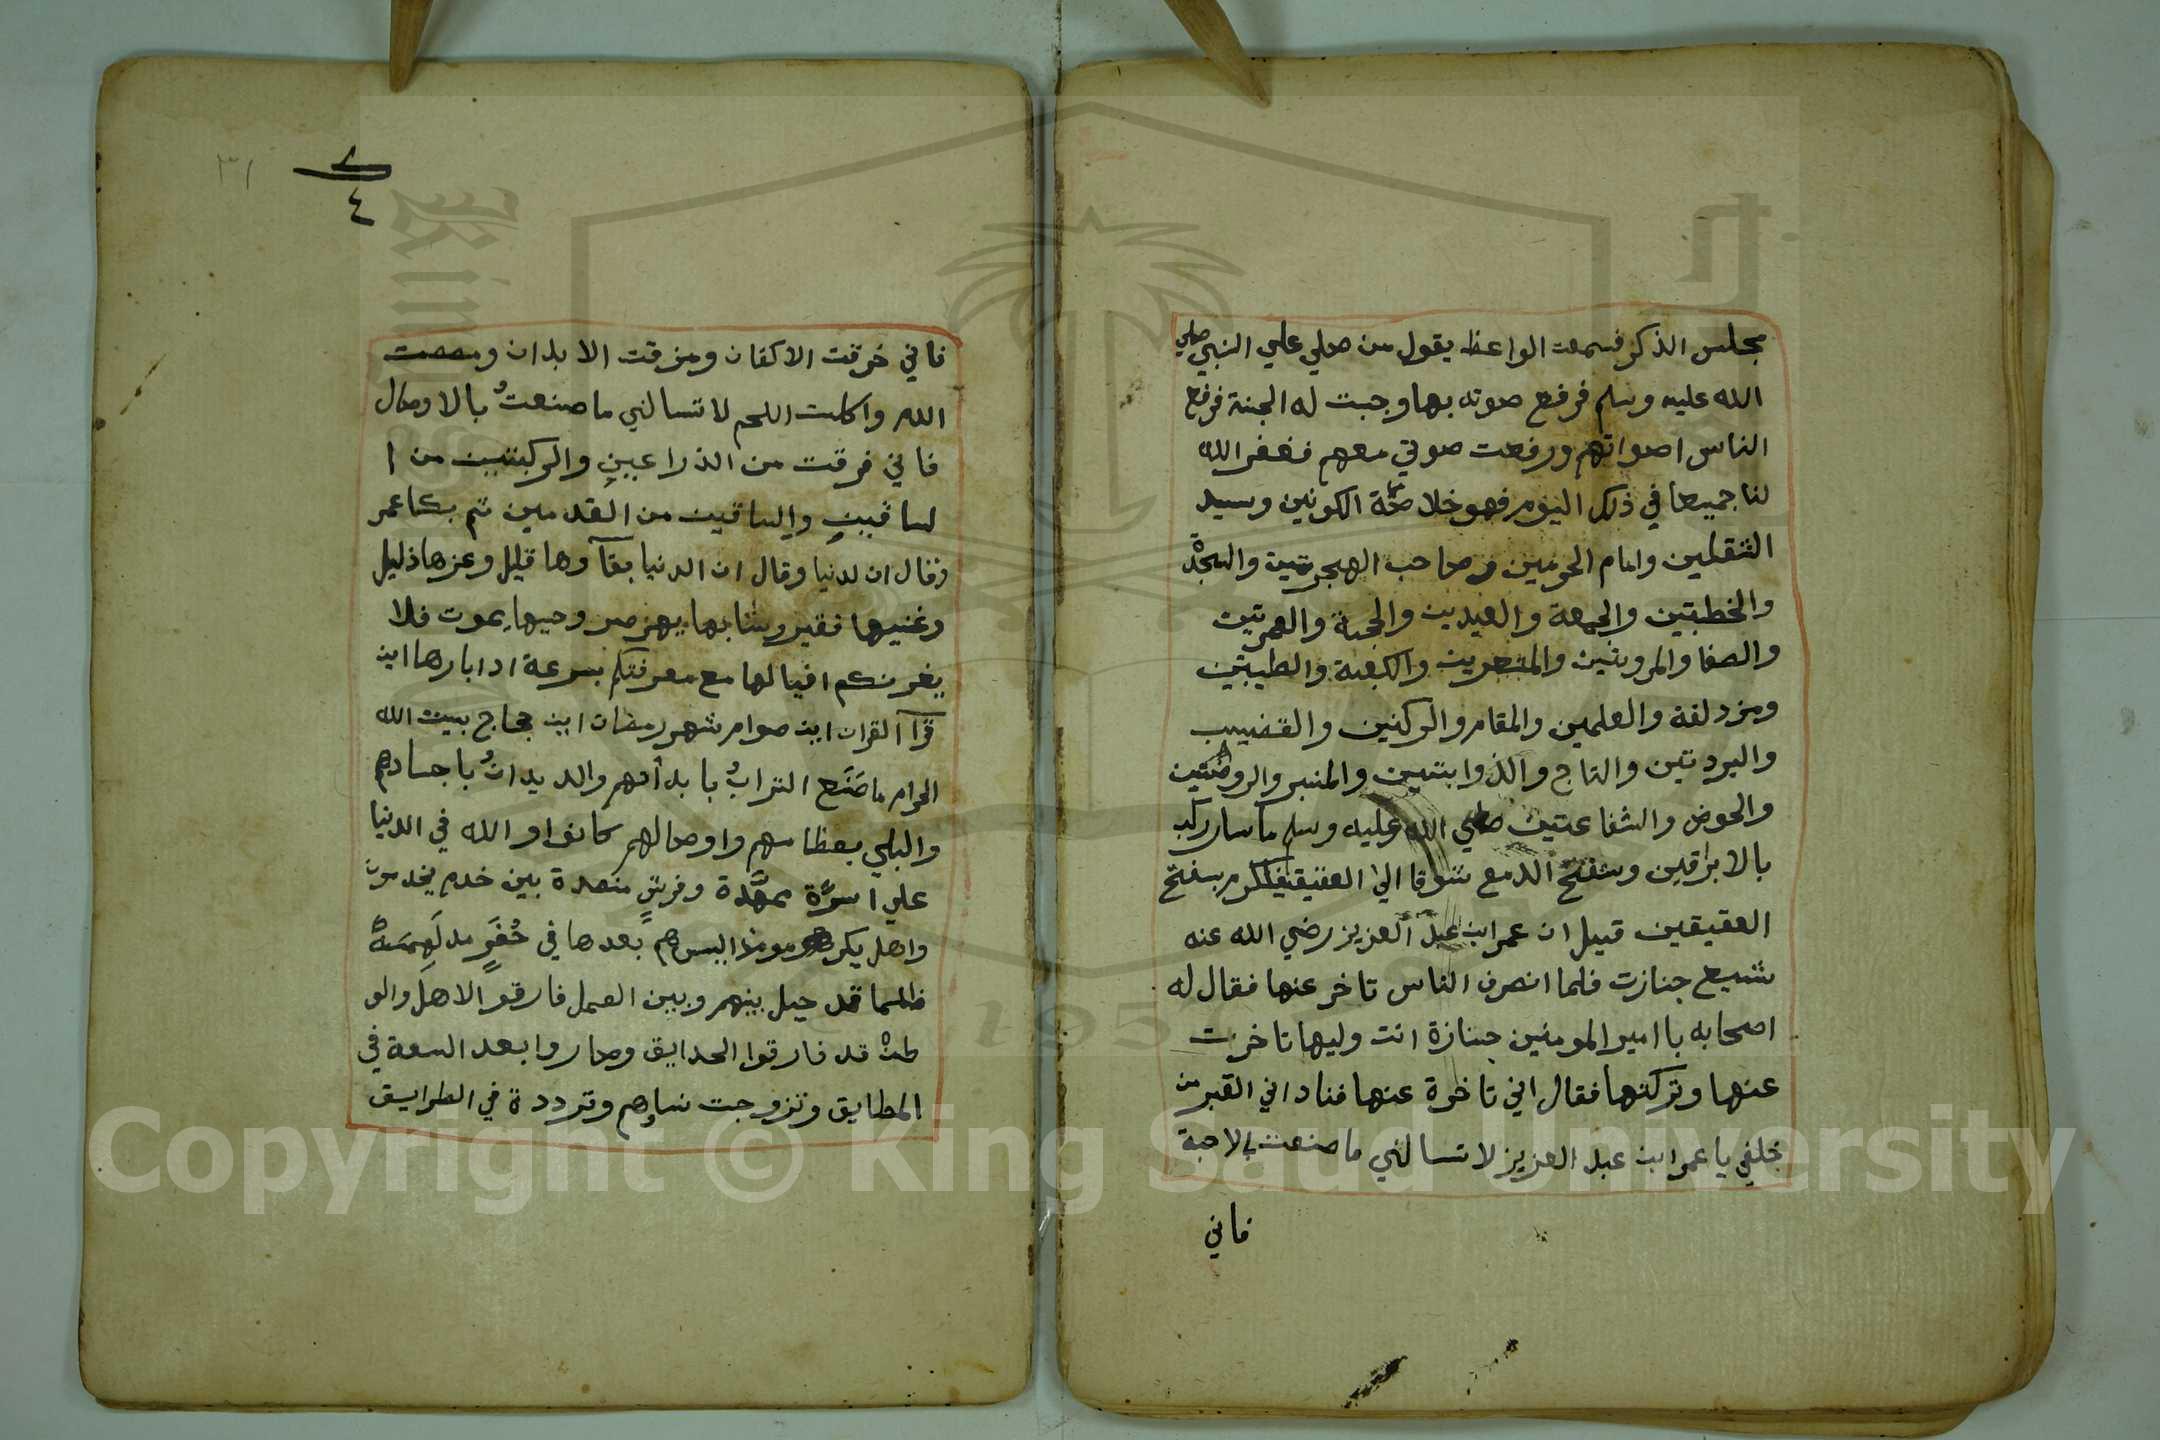 مجلس الذكر فسمعت الواعظ يقول من صلي علي النبي صلي
الله عليه وسلم فرفع صوته بها وجبت له الجنة فرفع
الناس اصواتهم ورفعت صوتي معهم فغفر الله
لنا جميعا في ذلك اليوم فهو خلاصة الكونين وسيد
الثقلين وامام الحرمين وصاحب الهجرتين
والخطبتين والجمعة والعيدين والحجة والعمرتين
والصفا والمروتين والمشعرين والكعبة والطيبتين
ومزدلفة والعلمين والمقام والركنين والقضيب
والبردتين والتاج والذوابتين والمنبر والروضتين
والحوض والشفاعتين صلي الله عليه وسلم ما سار ركب
بالابرقين وسفح الدمع شوقا الي العقيق بسفح
العقيقين قيل ان عمر ابن عبد العزيز رضي الله عنه
شيع جنازت فلما انصرف الناس تاخر عنها فقال له
اصحابه يا امير المومنين جنازة انت وليها تاخرت
عنها وتركتها فقال اني تاخرة عنها فناداني القبر من
خلفي يا عمر ابن عبد العزيز لا تسالني ما صنعت بالاحبة
فاني
٣١
٨
٤
فاني خرقت الاكفان ومزقت الابدان ومصصت
الدم واكلت اللحم لا تسالني ما صنعتُ بالاوصال
فاني فرقت من الذراعين والركبتين من ا
لساقين والساقين من القدمين ثم بكا عمر
وقال ان لدنيا وقال ان الدنيا بقآوها قليل وعزها ذليل
وغنيها فقير وشابها يهرم وحيها يموت فلا
يغرنكم اقبالها مع معرفتكم بسرعة ادابارها اين
قرآ القران اين صوام شهر رمضان اين حجاج بيت الله
الحرام ما صَنَع الترابُ بابدانهم والديدانُ باجسادهم
والبلي بعظامهم واوصالهم كانوا والله في الدنيا
علي اسرَّة ممهَّدة وفرشٍ منضدة بين خدم يخدمون
واهل يكرموا بعدها في حُفَرٍ مدلَهِمَةْ
ظلما قد حيل بينهم وبين العمل فارقو الاهل والو
طنْ قد فارقوا الحدايق وصاروا بعد السعة في
المطايق وتزوجت نساوهم وترددة في الطرايق
Copyright © King Saud University
1957